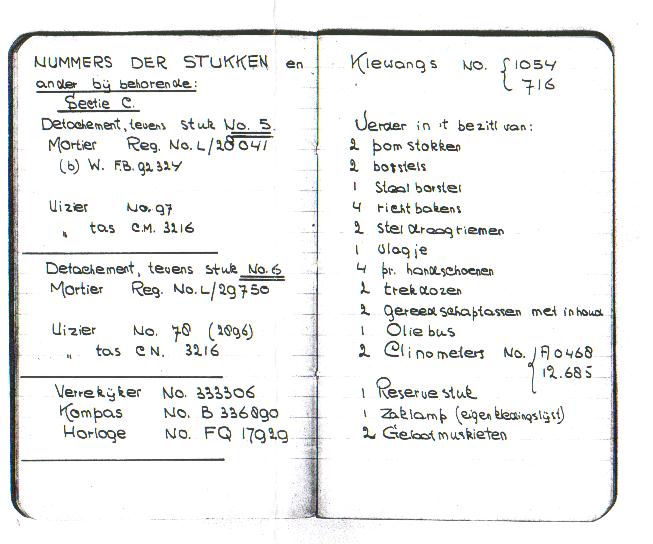 NUMMERS DER STUKKEN en
ander bij behorende:
Sectie C.
Detachement, tevens stuk No. 5.
Mortier Reg. No. L/28041
(b) W. F.B. 92324
Vizier No. 97
" tas C.M. 3216
Detachement, tevens stuk No. 6
Mortier Reg. No. L/29750
Vizier No. 78 (2896)
" tas C N. 3216
Verrekijker No. 333306
Kompas No. B 336890
Horloge No. FQ 17929
Klewangs No. { 1054
716
Verder in 't bezit van:
2 pom stokken
2 borstels
1 Staal borstel
4 richt bakens
2 stel draagriemen
1 vlagje
4 pr. handschoenen
2 trekdozen
2 gereedschaptassen met inhoud
1 Olie bus
2 Clinometers No. { A0468
12.685
1 Reserve stuk
1 Zaklamp (eigen kledingslijst)
2 muskieten